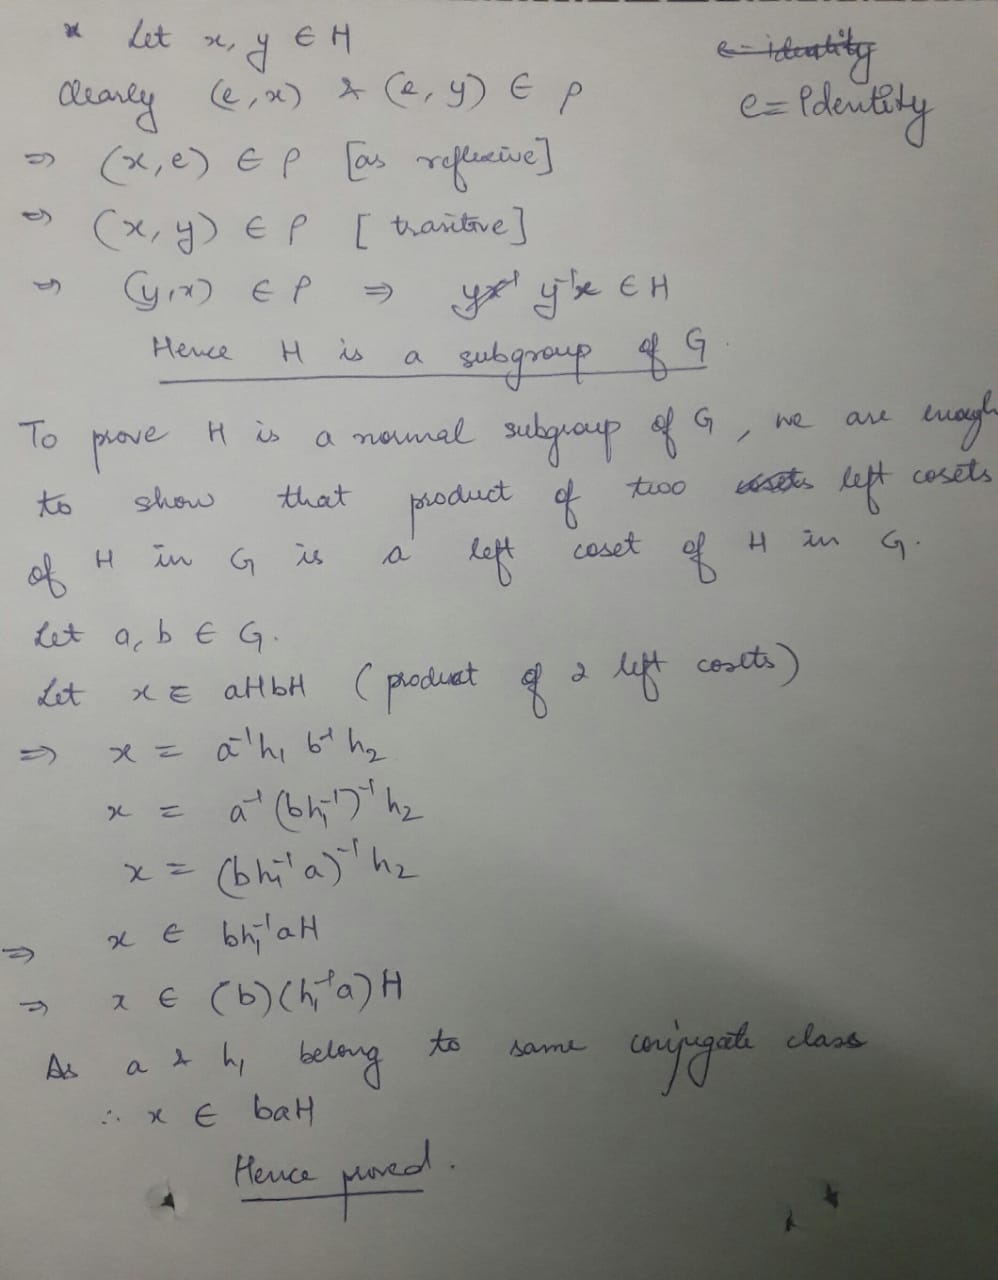 * Let x, y ∈ H
e = identity
Clearly (e, x) & (e, y) ∈ ρ
e = Identity
⇒ (x, e) ∈ ρ [as reflexive]
⇒ (x, y) ∈ ρ [trasitive]
⇒ (y, x) ∈ ρ ⇒ yx⁻¹ y⁻¹x ∈ H
Hence H is a subgroup of G.
To prove H is a normal subgroup of G, we are enough
to show that product of two cosets left cosets
of H in G is a left coset of H in G.
Let a, b ∈ G.
Let x ∈ aHbH (product of 2 left cosets)
⇒ x = a⁻¹h₁ b⁻¹ h₂
x = a⁻¹ (bh₁⁻¹)⁻¹ h₂
x = (bh₁⁻¹a)⁻¹ h₂
⇒ x ∈ bh₁⁻¹aH
⇒ x ∈ (b)(h₁⁻¹a)H
As a & h₁ belong to same conjugate class
∴ x ∈ baH
Hence proved.